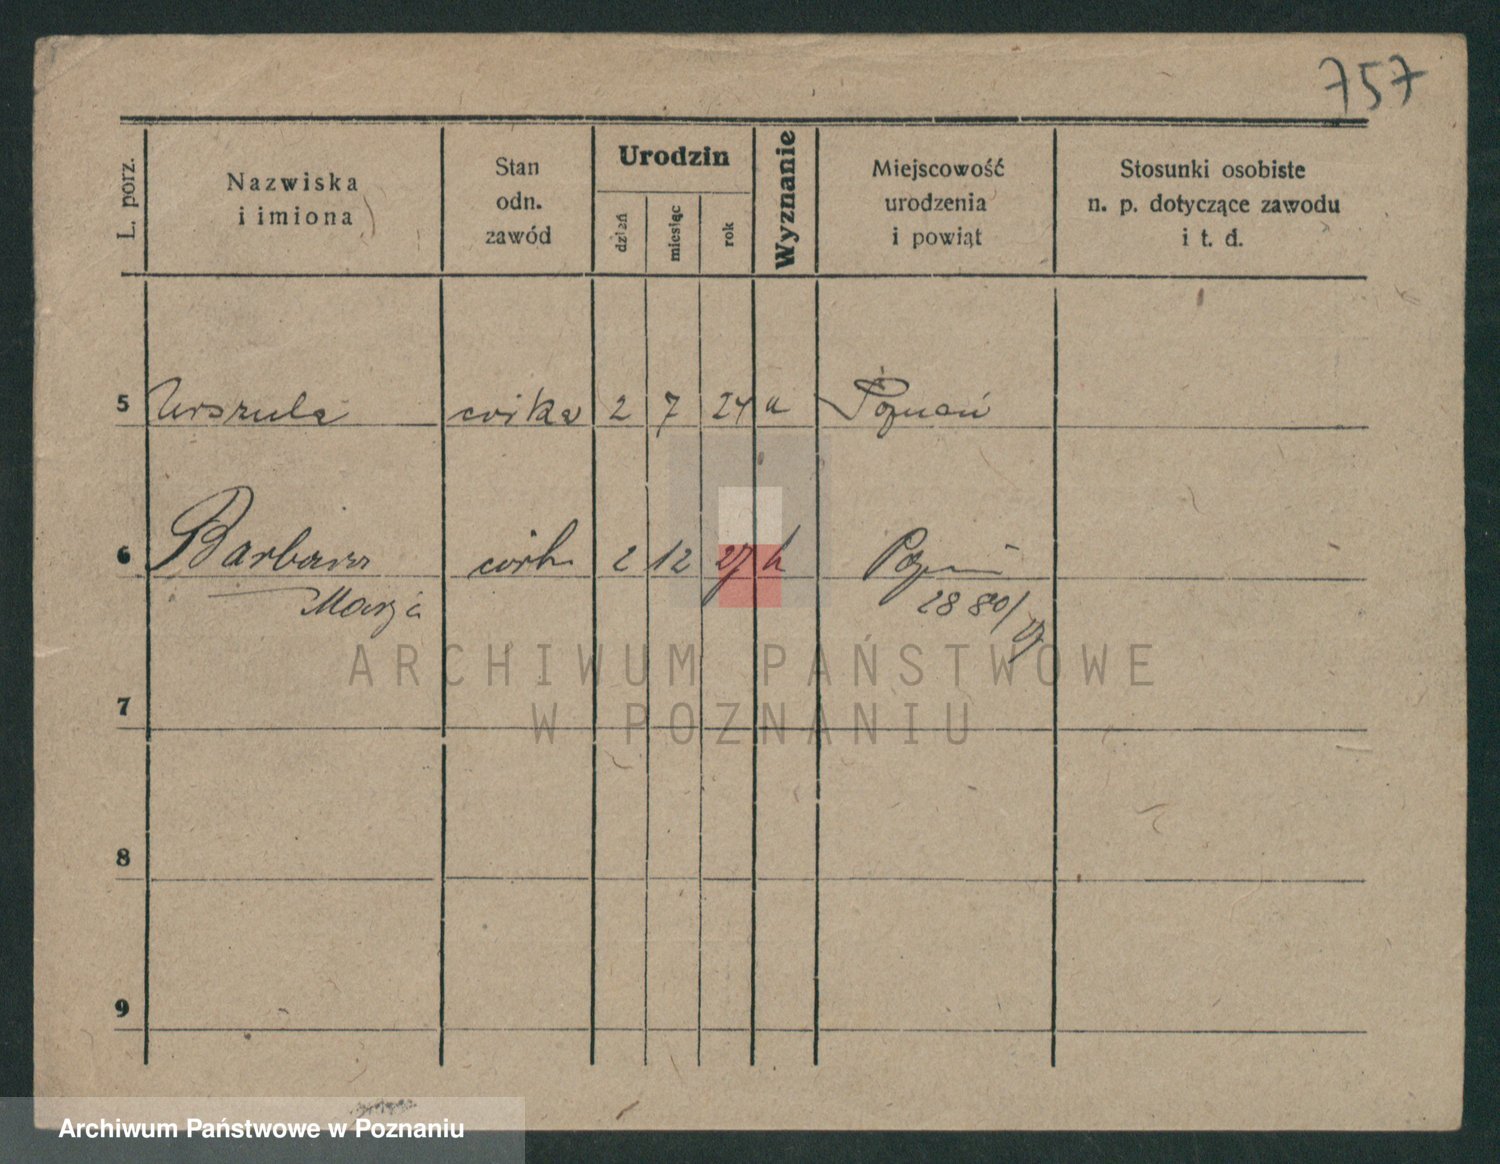 757
L. porz.
Nazwiska
i imiona
Stan
odn.
zawód
Urodzin
dzień
miesiąc
rok
Wyznanie
Miejscowość
urodzenia
i powiąt
Stosunki osobiste
n. p. dotyczące zawodu
i t. d.
5 Urszula córka 2 7 24 Poznań
6 Barbara 2 12 27
Marja 2880/27
7
8
9
ARCHIWUM PAŃSTWOWE
W POZNANIU
Archiwum Państwowe w Poznaniu